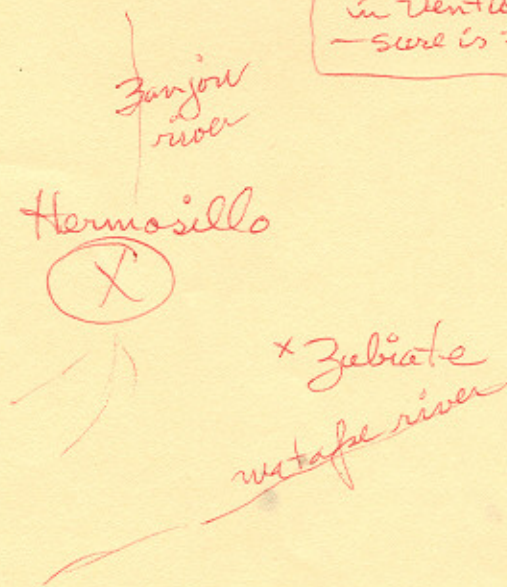 in
— sure is
Zanjon
river
Hermosillo
X
x Zubiate
matape river